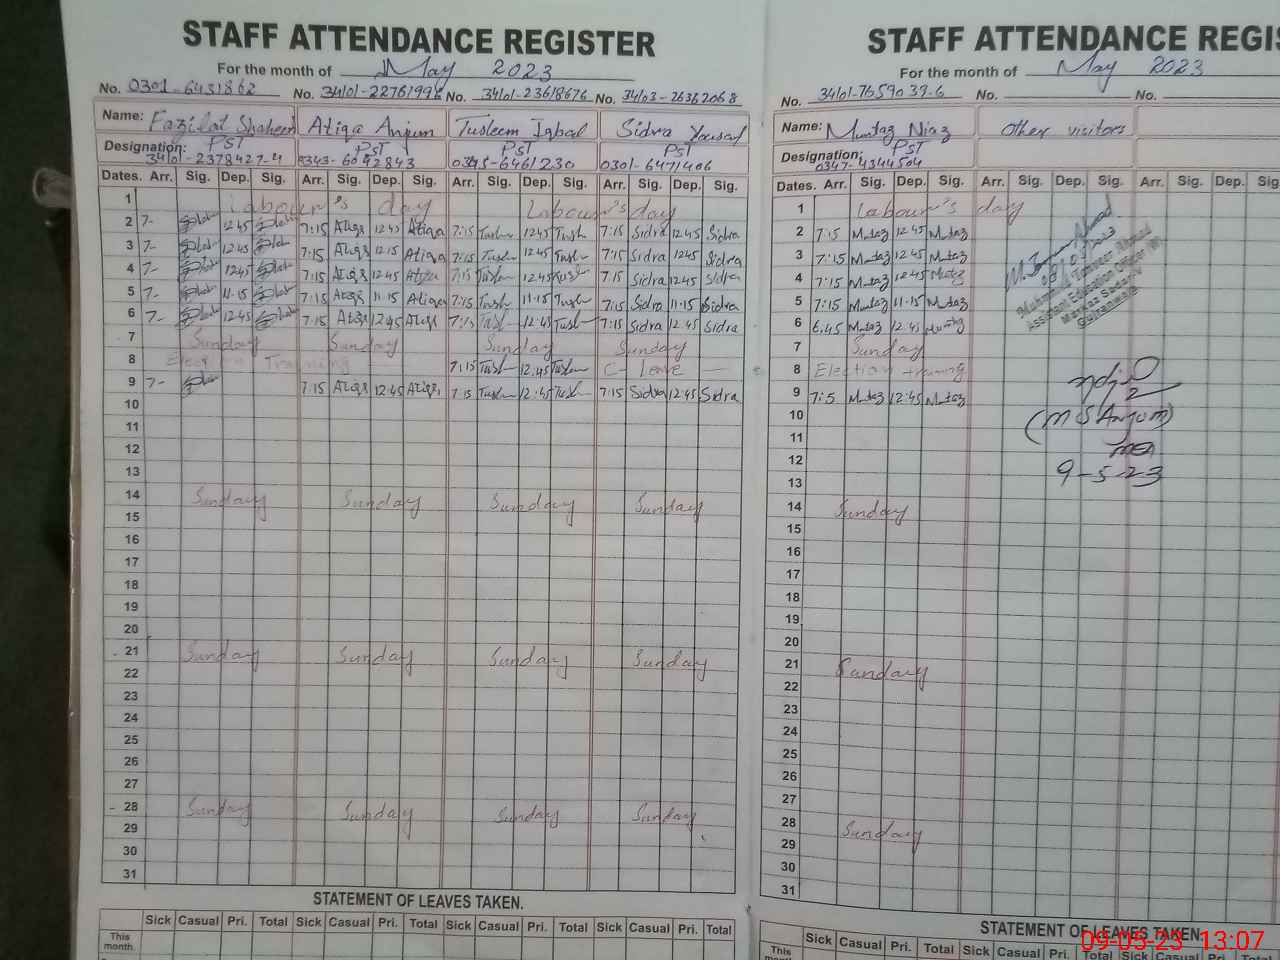 STAFF ATTENDANCE REGISTER
For the month of May 2023
No. 0301-6431862 No. 34101-2276199 No. 34101-23618676 No. 34103-26362068
Name: Fazilat Shaheen Atiqa Anjum Tusleem Iqbal Sidra Yousaf
Designation: PST PST PST PST
34101-2378427-4 0343-6042843 0345-6461230 0301-6471406
Dates. Arr. Sig. Dep. Sig. Arr. Sig. Dep. Sig. Arr. Sig. Dep. Sig. Arr. Sig. Dep. Sig.
1 Labour's day Labour's day
2 7- 12 45 7:15 Atiqa 12 45 Atiqa 7:15 Tush 12 45 Tush 7:15 Sidra 12 45 Sidra
3 7- 12 45 7:15 Atiqa 12 15 Atiqa 7:15 Tush 12 45 Tush 7:15 Sidra 12 45 Sidra
4 7- 12 45 7:15 Atiqa 12 45 Atiqa 7:15 Tush 12 45 Tush 7:15 Sidra 12 45 Sidra
5 7- 11-15 7:15 Atiqa 11 15 Atiqa 7:15 Tush 11-15 Tush 7:15 Sidra 11-15 Sidra
6 7- 12 45 7:15 Atiqa 12 45 Atiqa 7:15 Tush 12:45 Tush 7:15 Sidra 12 45 Sidra
7 Sunday Sunday Sunday Sunday
8 Election Training 7:15 Tush 12:45 Tush C- Leave
9 7- 7:15 Atiqa 12 45 Atiqa 7:15 Tush 12:45 Tush 7:15 Sidra 12 45 Sidra
10
11
12
13
14 Sunday Sunday Sunday Sunday
15
16
17
18
19
20
21 Sunday Sunday Sunday Sunday
22
23
24
25
26
27
28 Sunday Sunday Sunday Sunday
29
30
31
STATEMENT OF LEAVES TAKEN.
Sick Casual Pri. Total Sick Casual Pri. Total Sick Casual Pri. Total Sick Casual Pri. Total
This month.
STAFF ATTENDANCE REGIS
For the month of May 2023
No. 34101-7659039-6 No. No.
Name: Mumtaz Niaz Other visitors
Designation: PST
0347-4344504
Dates. Arr. Sig. Dep. Sig. Arr. Sig. Dep. Sig. Arr. Sig. Dep. Sig
1 Labour's day
2 7:15 Mutaz 12 45 Mutaz
3 7:15 Mutaz 12 45 Mutaz
4 7:15 Mutaz 12 45 Mutaz
5 7:15 Mutaz 11-15 Mutaz
6 6.45 Mutaz 12 45 Mumtaz
7 Sunday
8 Election training
9 7:5 Mutaz 12:45 Mutaz
10
11
12
13
14 Sunday
15
16
17
18
19
20
21 Sunday
22
23
24
25
26
27
28 Sunday
29
30
31
Assistant Education Officer (W)
Markaz Sadar-IV
Gujranwala
(M S Anjum)
MEA
9-5-23
STATEMENT OF LEAVES TAKEN.
Sick Casual Pri. Total Sick Casual Pri. Total Sick Casual Pri.
This month
09-05-23 13:07